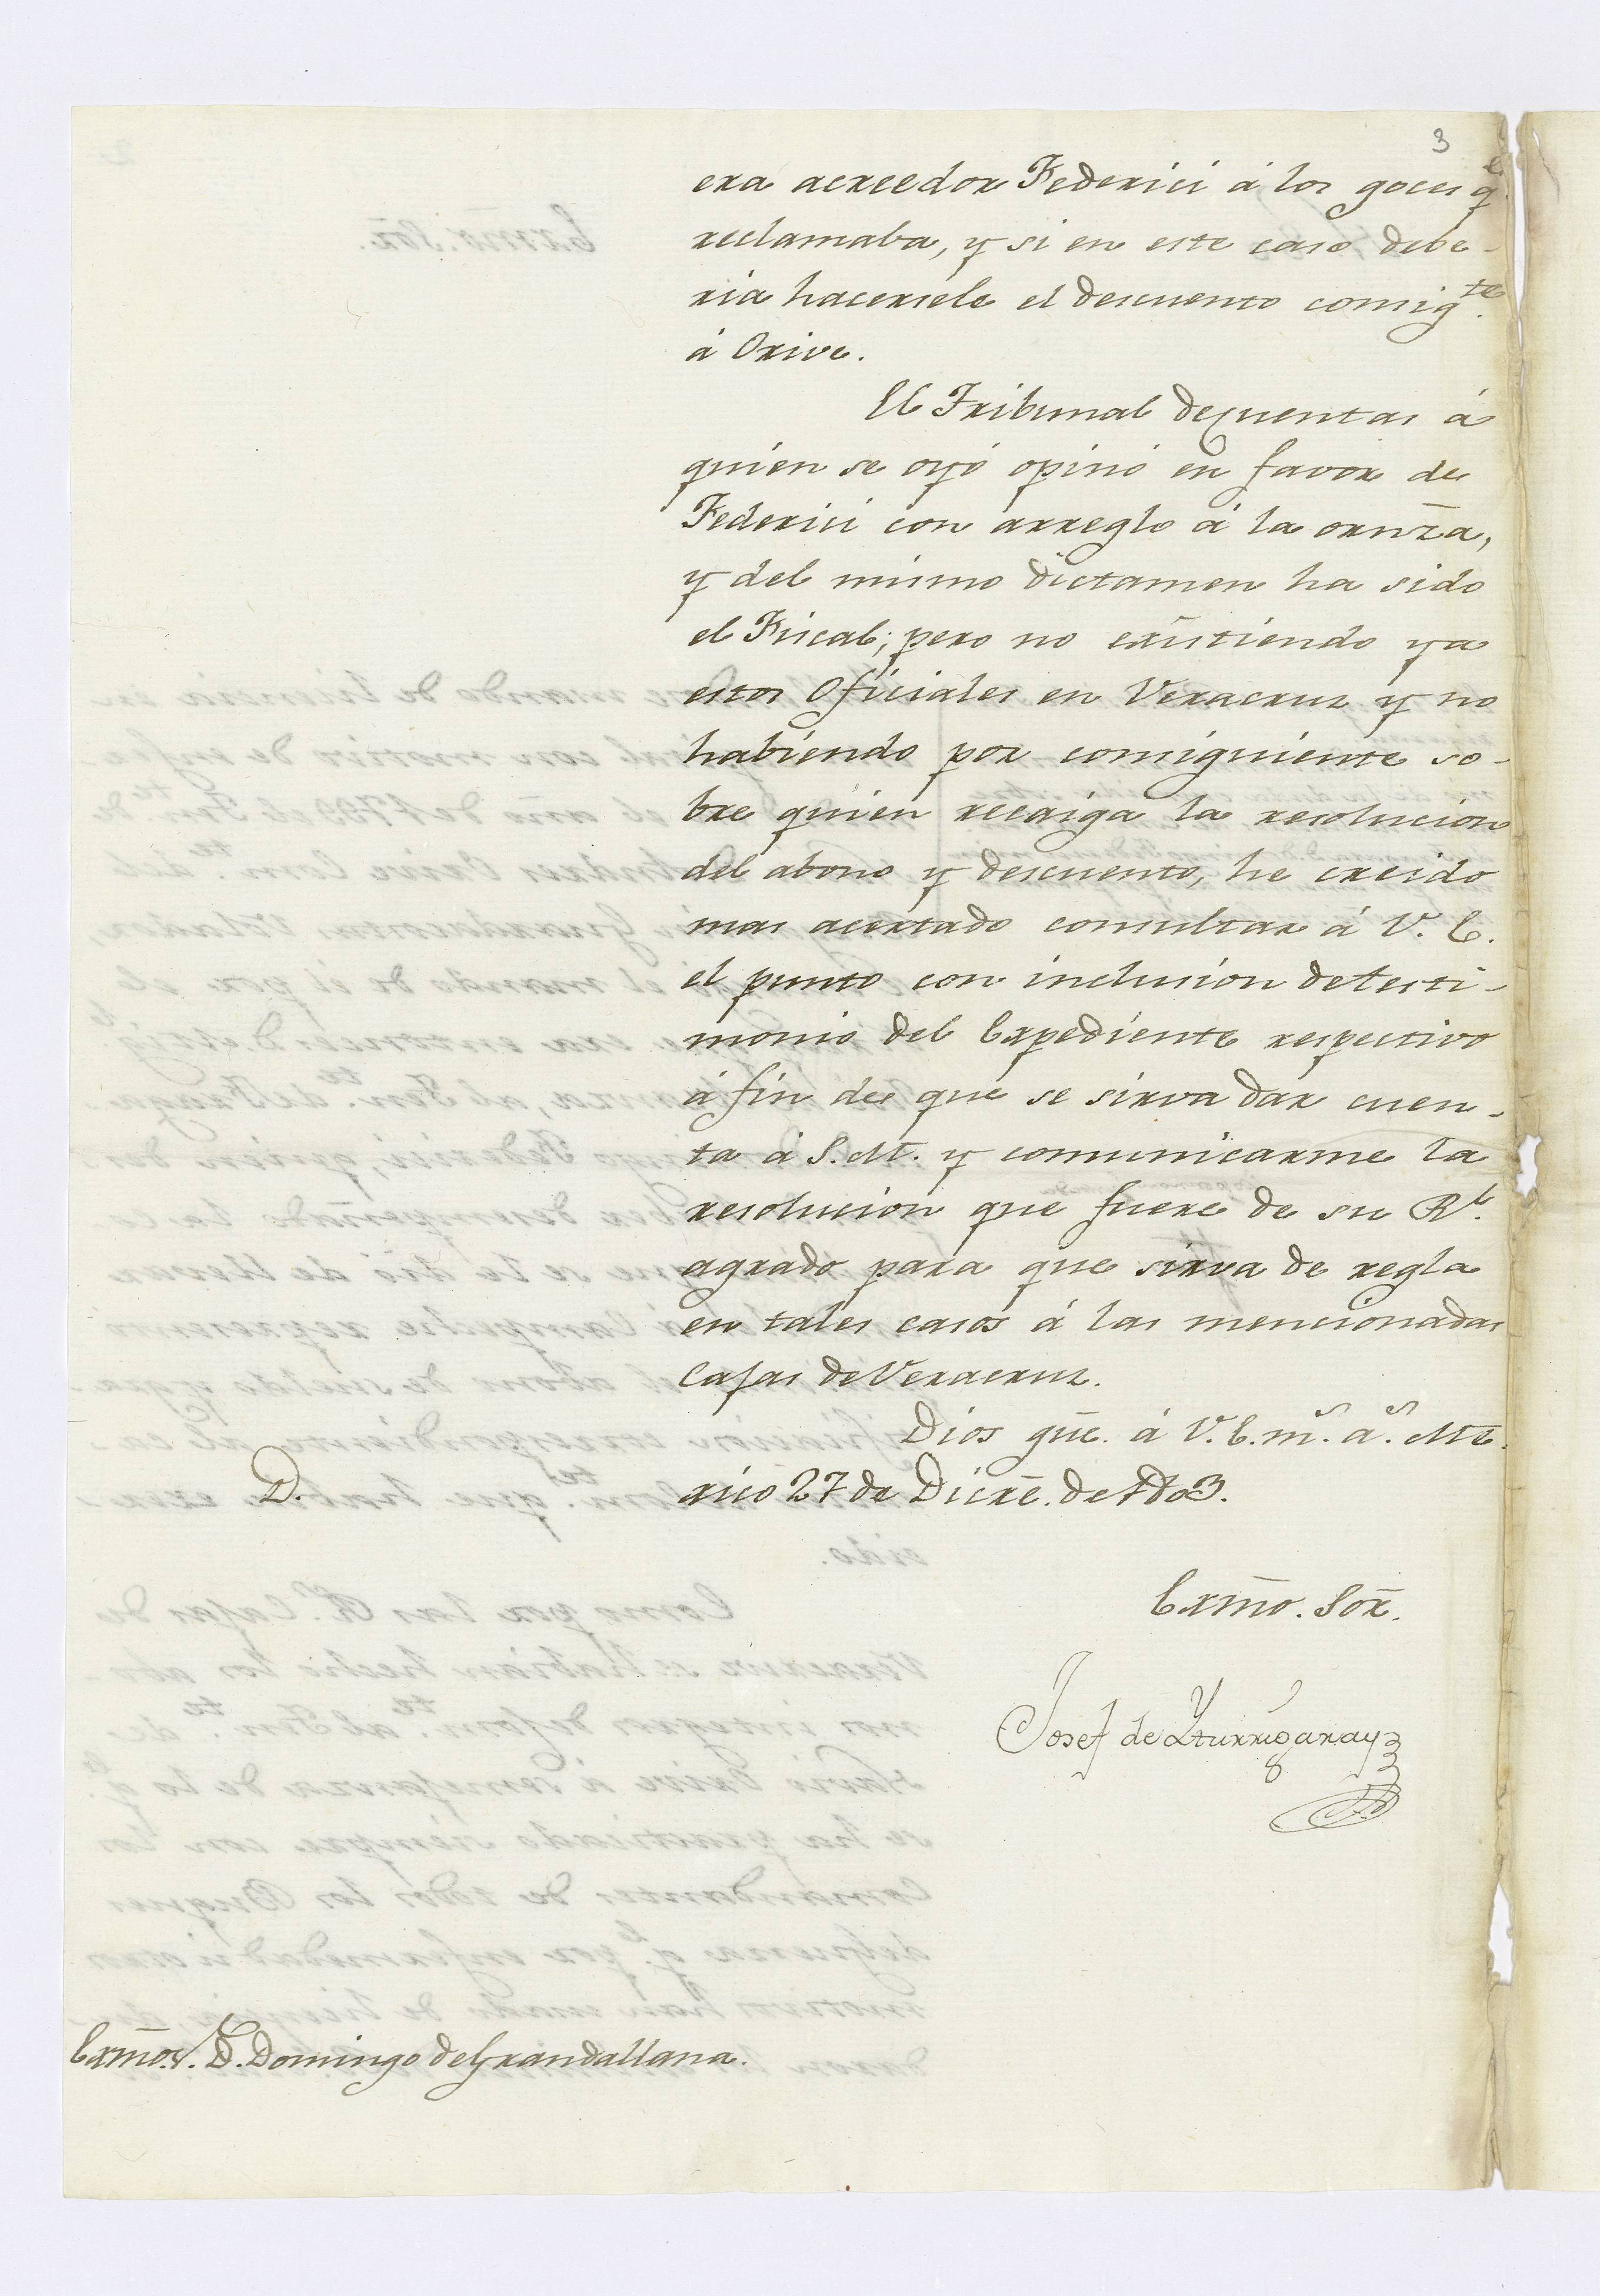 3
era acreedor Federici á los goces q.e
reclamaba, y si en este caso debe-
ria hacersele el descuento consig.te
á Orive.
El Tribunal de Cuentas á
quien se oyó opinó en favor de
Federici con arreglo á la ornza,
y del mismo dictamen ha sido
el Fiscal; pero no existiendo ya
estos Oficiales en Veracruz y no
habiendo por consiguiente so-
bre quien recaiga la resolucion
del abono y descuento, he creido
mas acertado consultar á V. E.
el punto con inclusion de testi-
monio del Expediente respectivo
á fin de que se sirva dar cuen-
ta á S. M. y comunicarme la
resolucion que fuere de su R.l
agrado para que sirva de regla
en tales casos á las mencionadas
Cajas de Veracruz.
Dios gue. á V. E. m.s a.s Me-
xico 27 de Dicre. de 1803.
D.
Exmo. Sor.
Josef de Yturrigaray
Exmo. S. D. Domingo de Grandallana.